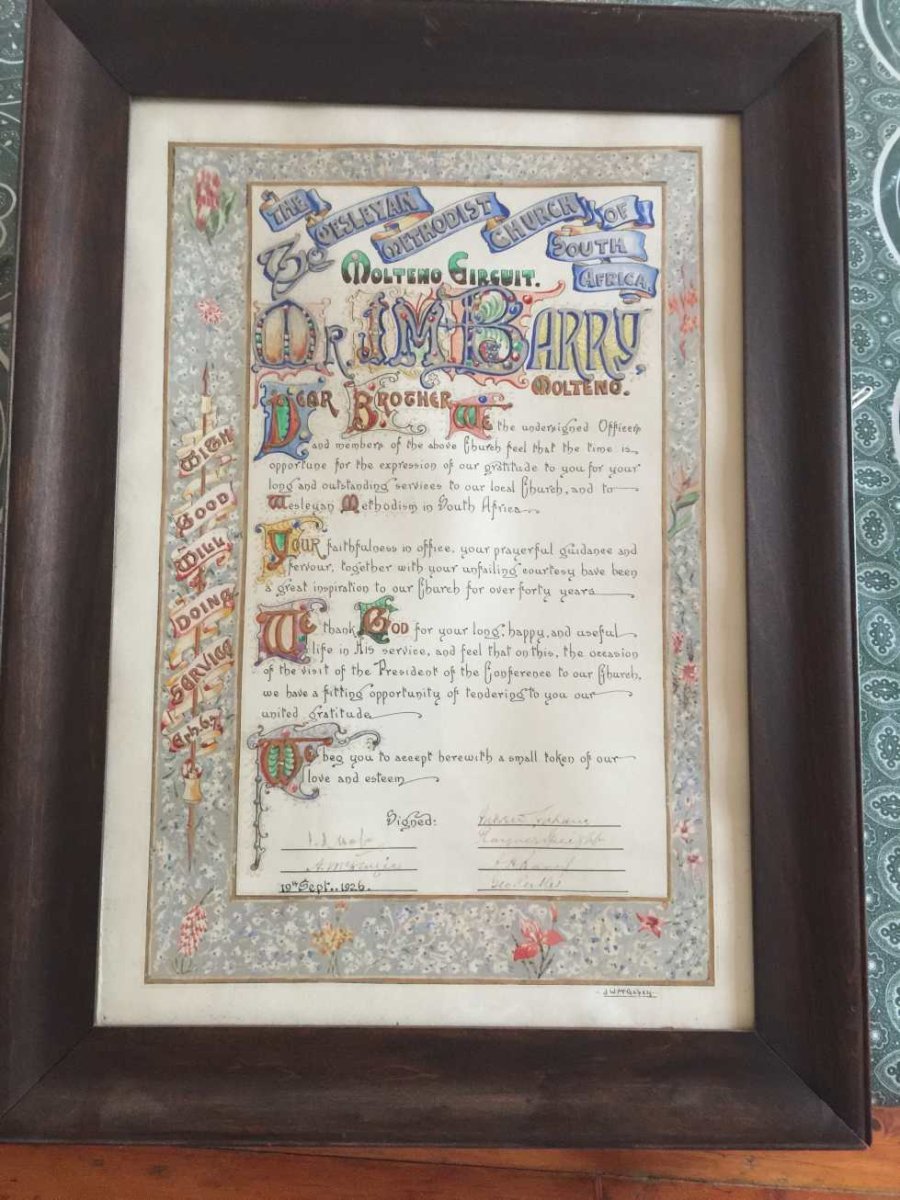 THE WESLEYAN METHODIST CHURCH OF SOUTH AFRICA.
To
MOLTENO CIRCUIT.
MR J M BARRY,
MOLTENO.
DEAR BROTHER
WE the undersigned Officers
and members of the above Church feel that the time is
opportune for the expression of our gratitude to you for your
long and outstanding services to our local Church, and to
Wesleyan Methodism in South Africa
YOUR faithfulness in office, your prayerful guidance and
fervour, together with your unfailing courtesy have been
a great inspiration to our Church for over forty years
WE thank GOD for your long, happy, and useful
life in His service, and feel that on this, the occasion
of the visit of the President of the Conference to our Church,
we have a fitting opportunity of tendering to you our
united gratitude
WE beg you to accept herewith a small token of our
love and esteem
Signed:
19th Sept., 1926.
WITH
GOOD
WILL
DOING
SERVICE
Eph 6.7